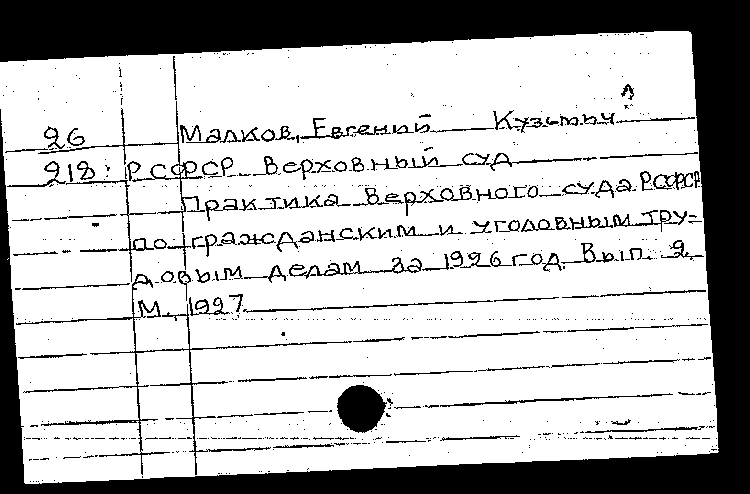 Л
26 Малков, Евгений Кузьмич
218: РСФСР. Верховный суд
Практика Верховного суда РСФСР
по гражданским и уголовным тру-
довым делам за 1926 год. Вып. 2.
М., 1927.